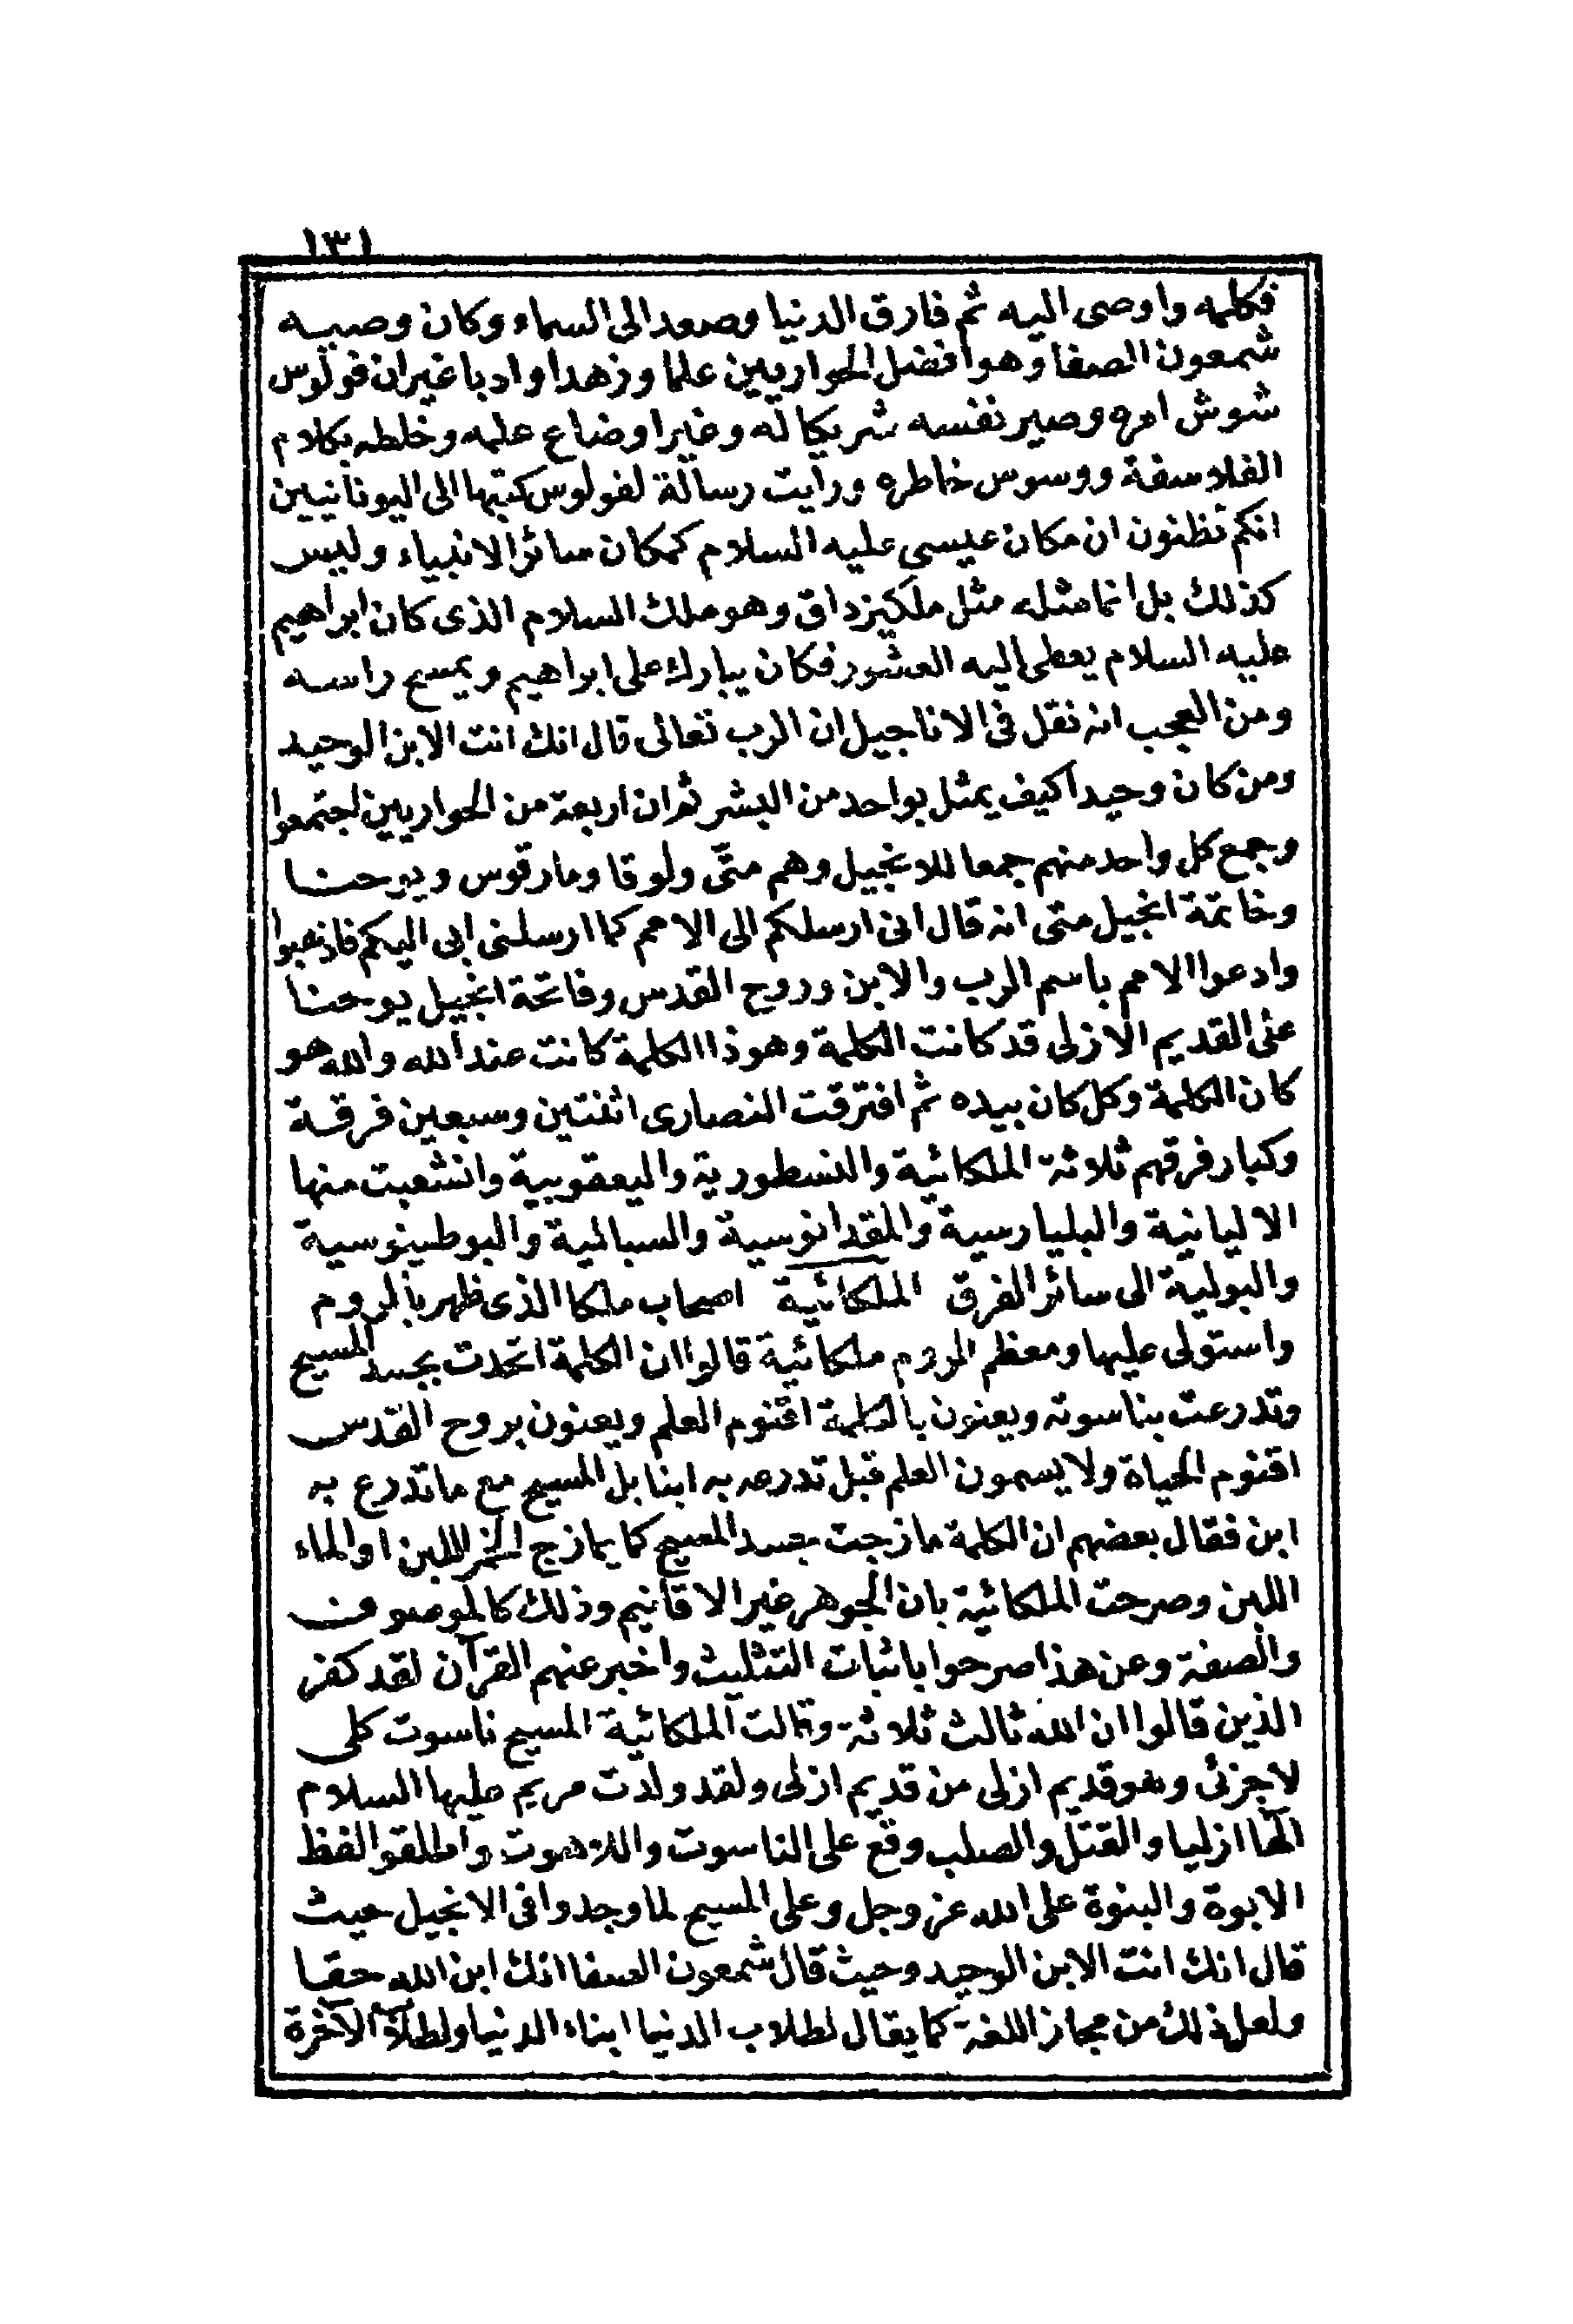 ١٣١
فكلمه واوصى اليه ثم فارق الدنيا وصعد الى السماء وكان وصيه
شمعون الصفا وهو افضل الحواريين علما وزهدا وادبا غير ان فولوس
شوش امره وصير نفسه شريكا له وغير اوضاع علمه وخلطه بكلام
الفلاسفة ووسوس خاطره ورايت رسالة لفولوس كتبها الى اليونانيين
انكم تظنون ان مكان عيسى عليه السلام كمكان سائر الانبياء وليس
كذلك بل انما مثله مثل ملكيزداق وهو ملك السلام الذى كان ابراهيم
عليه السلام يعطى اليه العشور فكان يبارك على ابراهيم ويمسح راسه
ومن العجب انه نقل فى الاناجيل ان الرب تعالى قال انك انت الابن الوحيد
ومن كان وحيدا كيف يمثل بواحد من البشر ثم ان اربعة من الحواريين اجتمعوا
وجمع كل واحد منهم جمعا للانجيل وهم متى ولوقا ومارقوس ويوحنا
وخاتمة انجيل متى انه قال انى ارسلكم الى الامم كما ارسلنى ابى اليكم فاذهبوا
وادعوا الامم باسم الرب والابن وروح القدس وفاتحة انجيل يوحنا
على القديم الازلى قد كانت الكلمة وهوذا الكلمة كانت عند الله والله هو
كان الكلمة وكل كان بيده ثم افترقت النصارى اثنتين وسبعين فرقة
وكبار فرقهم ثلاثة الملكائية والنسطورية واليعقوبية وانشعبت منها
الاليانية والبليارسية والمقدانوسية والسبالية والبوطينوسية
والبولية الى سائر الفرق الملكائية اصحاب ملكا الذى ظهر بالروم
واستولى عليها ومعظم الروم ملكائية قالوا ان الكلمة اتحدت بجسد المسيح
وتدرعت بناسوته ويعنون بالكلمة اقنوم العلم ويعنون بروح القدس
اقنوم الحياة ولا يسمون العلم قبل تدرعه به ابنا بل المسيح مع ما تدرع به
ابن فقال بعضهم ان الكلمة مازجت جسد المسيح كما يمازج الخمر اللبن او الماء
اللبن وصرحت الملكائية بان الجوهر غير الاقانيم وذلك كالموصوف
والصفة وعن هذا صرحوا باثبات التثليث واخبر عنهم القرآن لقد كفر
الذين قالوا ان الله ثالث ثلاثة وقالت الملكائية المسيح ناسوت كلى
لا جزئى وهو قديم ازلى من قديم ازلى ولقد ولدت مريم عليها السلام
الها ازليا والقتل والصلب وقع على الناسوت واللاهوت واطلقوا لفظ
الابوة والبنوة على الله عز وجل وعلى المسيح لما وجدوا فى الانجيل حيث
قال انك انت الابن الوحيد وحيث قال شمعون الصفا انك ابن الله حقا
ولعل ذلك من مجاز اللغة كما يقال لطلاب الدنيا ابناء الدنيا ولطلاب الآخرة